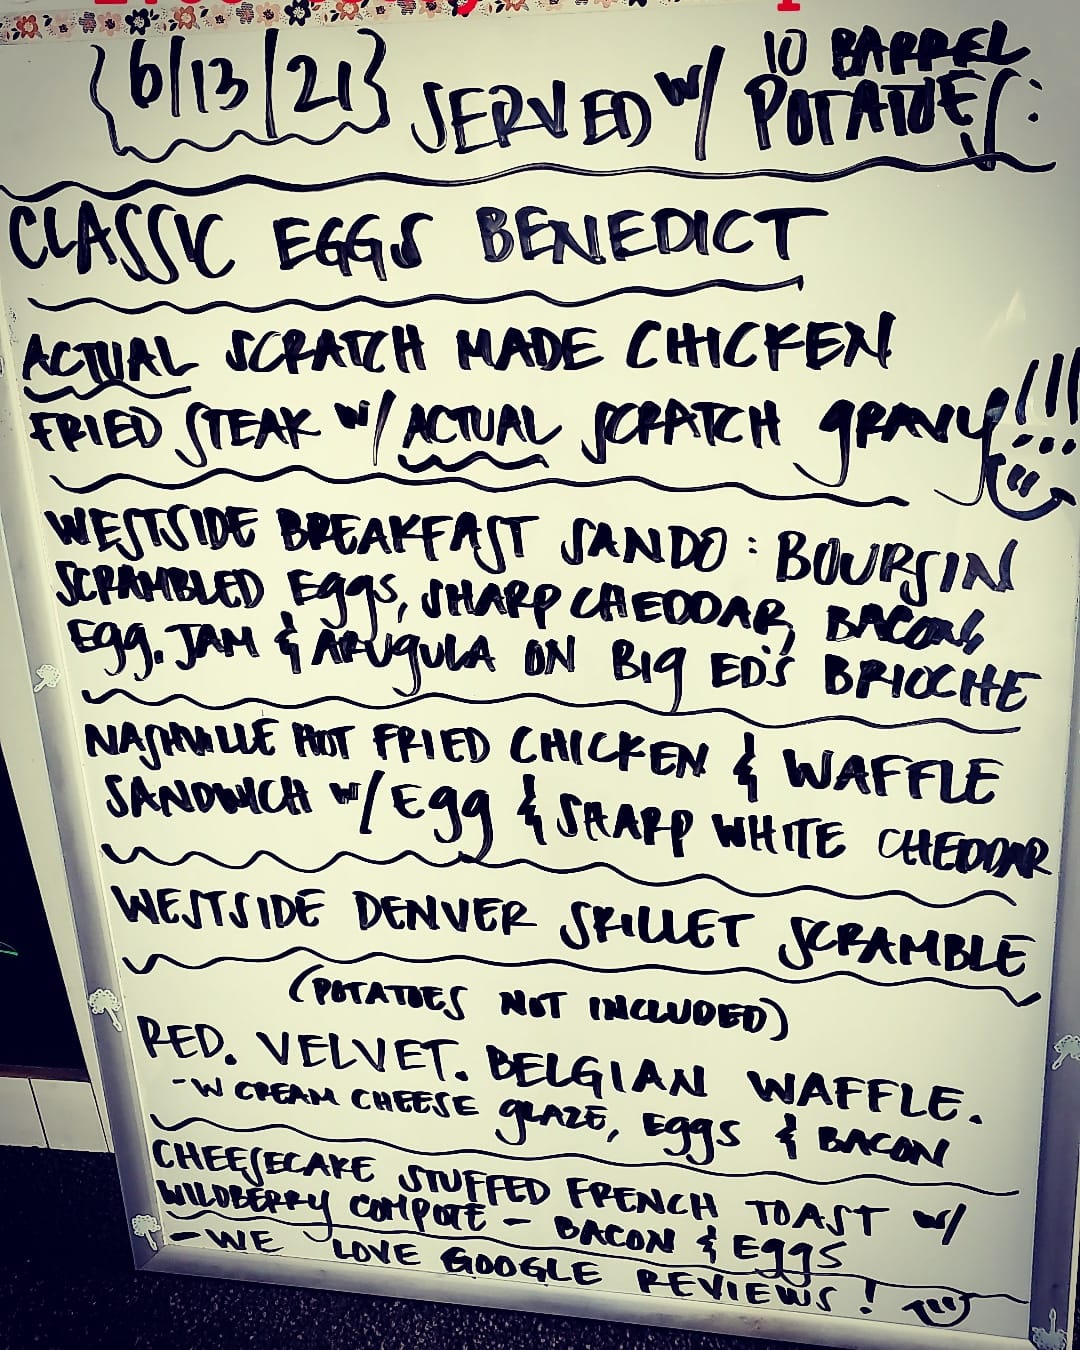 {6/13/21} SERVED W/ 10 BARREL POTATOES:
CLASSIC EGGS BENEDICT
ACTUAL SCRATCH MADE CHICKEN
FRIED STEAK W/ ACTUAL SCRATCH GRAVY!!!
WESTSIDE BREAKFAST SANDO: BOURSIN
SCRAMBLED EGGS, SHARP CHEDDAR, BACON,
EGG. JAM & ARUGULA ON BIG ED'S BRIOCHE
NASHVILLE HOT FRIED CHICKEN & WAFFLE
SANDWICH W/ EGG & SHARP WHITE CHEDDAR
WESTSIDE DENVER SKILLET SCRAMBLE
(POTATOES NOT INCLUDED)
RED. VELVET. BELGIAN WAFFLE.
-W CREAM CHEESE GLAZE, EGGS & BACON
CHEESECAKE STUFFED FRENCH TOAST W/
WILDBERRY COMPOTE - BACON & EGGS
- WE LOVE GOOGLE REVIEWS!